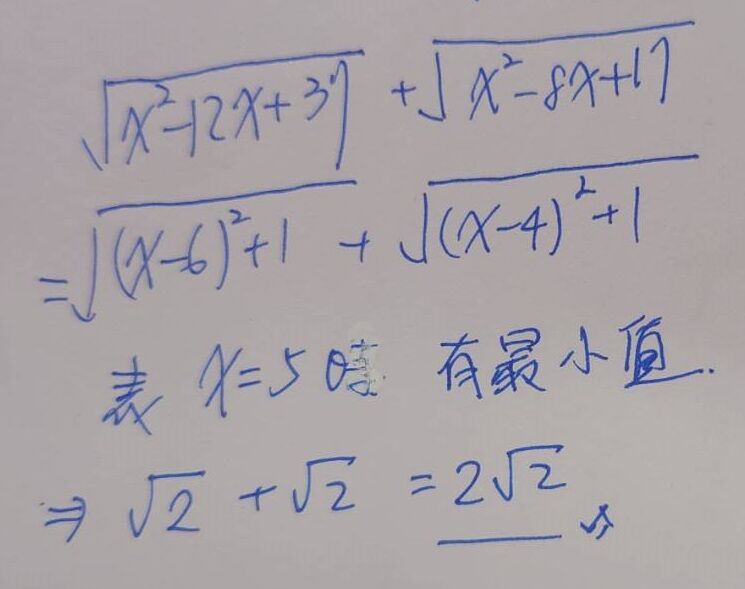 √(x²-12x+37) + √(x²-8x+17)
=√((x-6)²+1) + √((x-4)²+1)
表 x=5時 有最小值.
⇒ √2 + √2 = 2√2